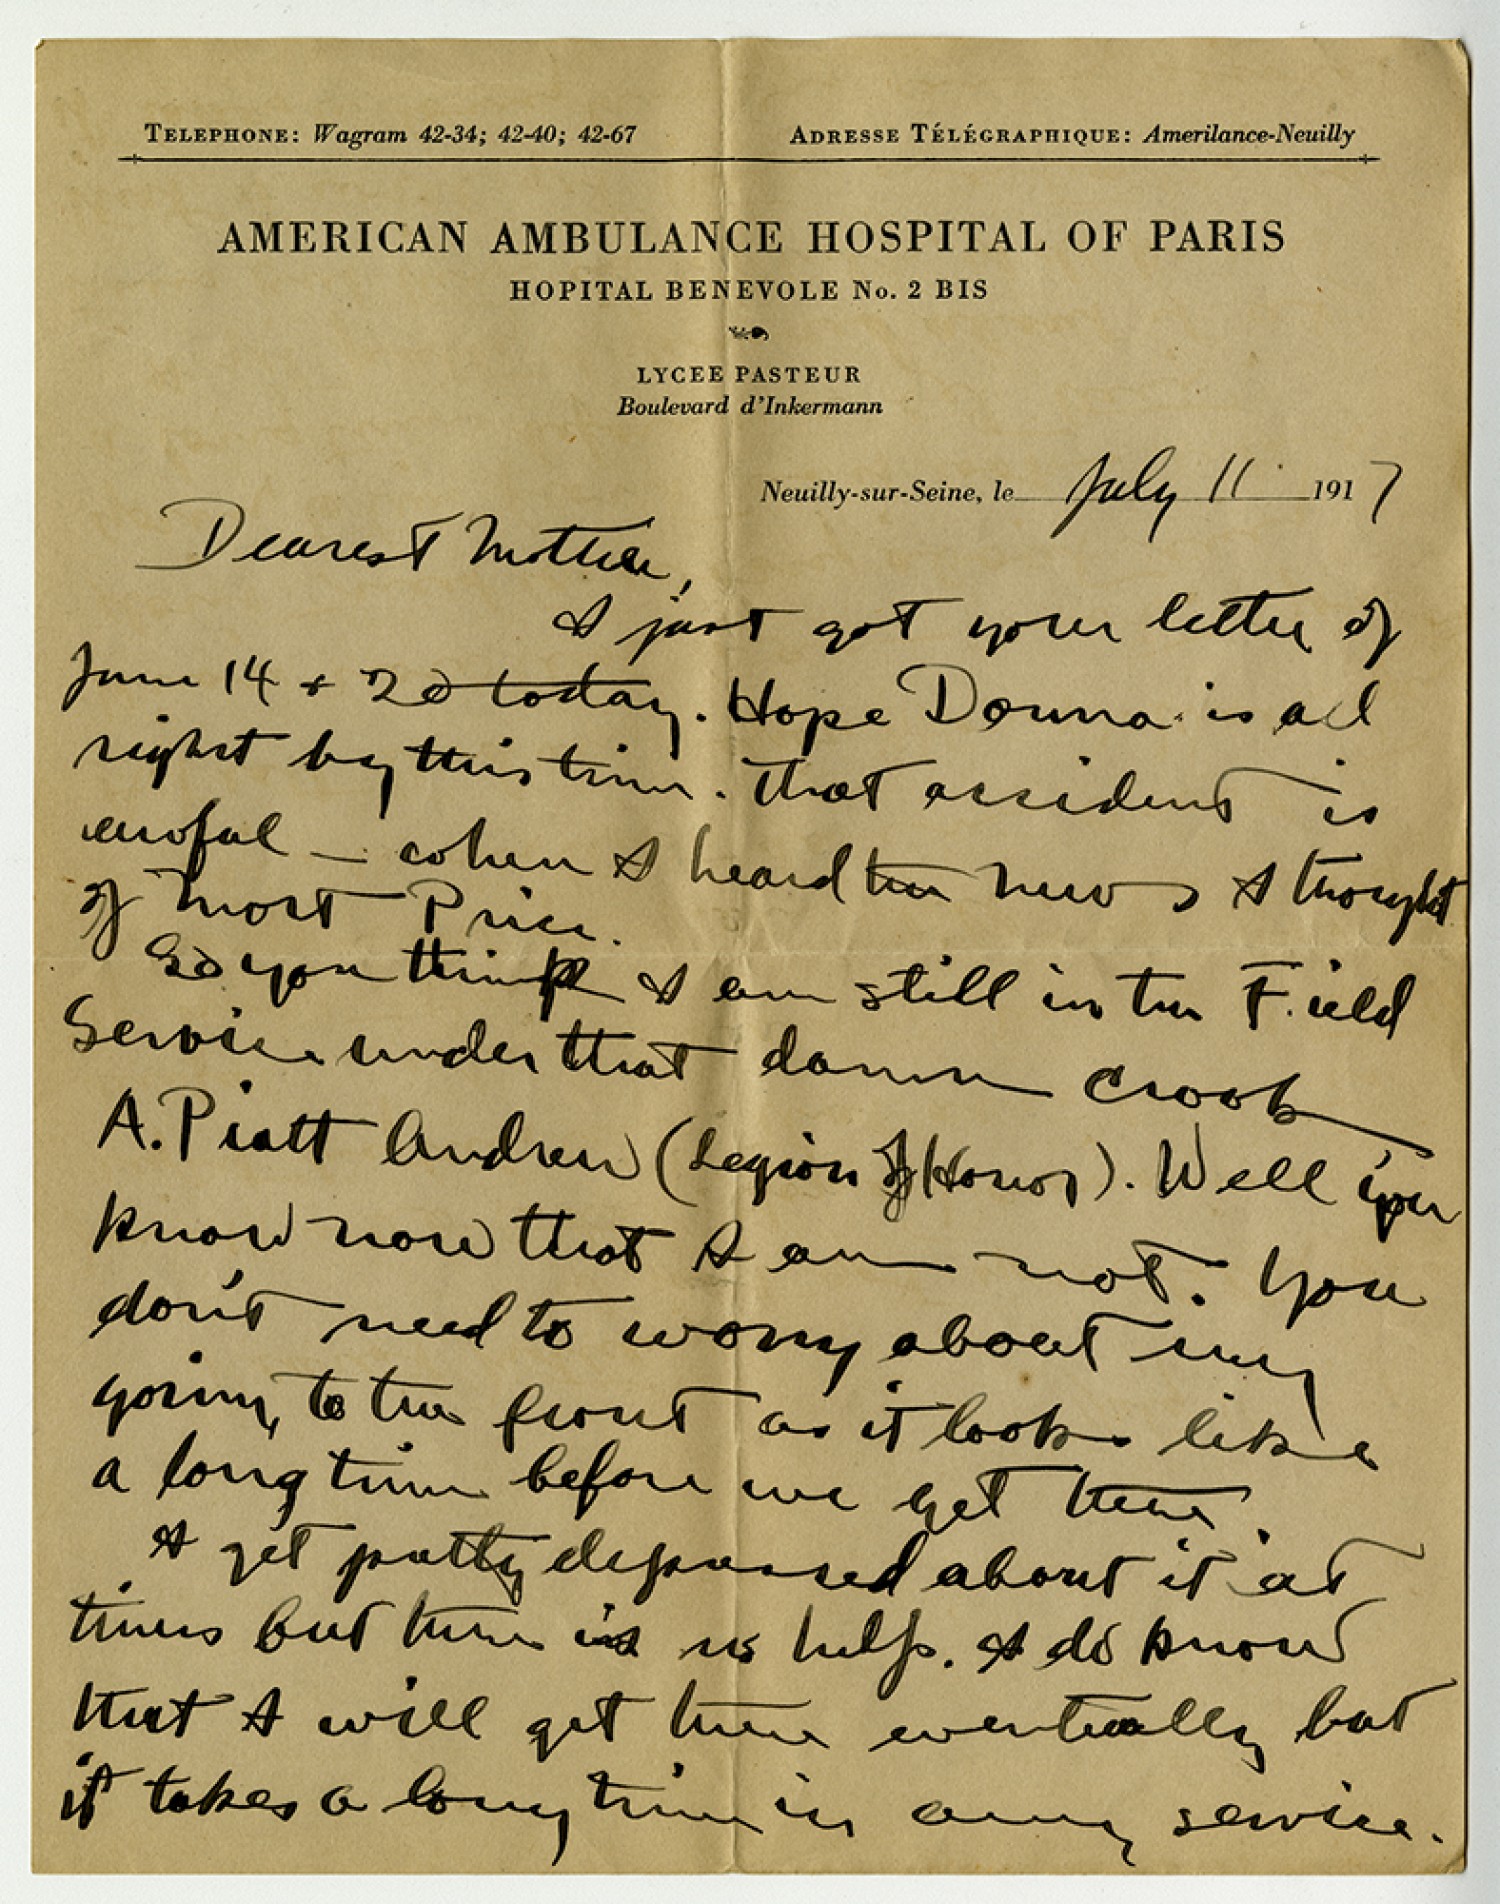 TELEPHONE: Wagram 42-34; 42-40; 42-67
ADRESSE TÉLÉGRAPHIQUE: Amerilance-Neuilly
AMERICAN AMBULANCE HOSPITAL OF PARIS
HOPITAL BENEVOLE No. 2 BIS
LYCEE PASTEUR
Boulevard d'Inkermann
Neuilly-sur-Seine, le July 11 1917
Dearest Mother,
I just got your letter of
June 14 + 20 today. Hope Donna is all
right by this time. That accident is
awful — when I heard the news I thought
of Mort Price.
So you think I am still in the Field
Service under that damn crook
A. Piatt Andrew (Legion of Honor). Well you
know now that I am not. You
don't need to worry about my
going to the front as it looks like
a long time before we get there.
I get pretty depressed about it at
times but there is no help. I do know
that I will get there eventually but
it takes a long time in army service.